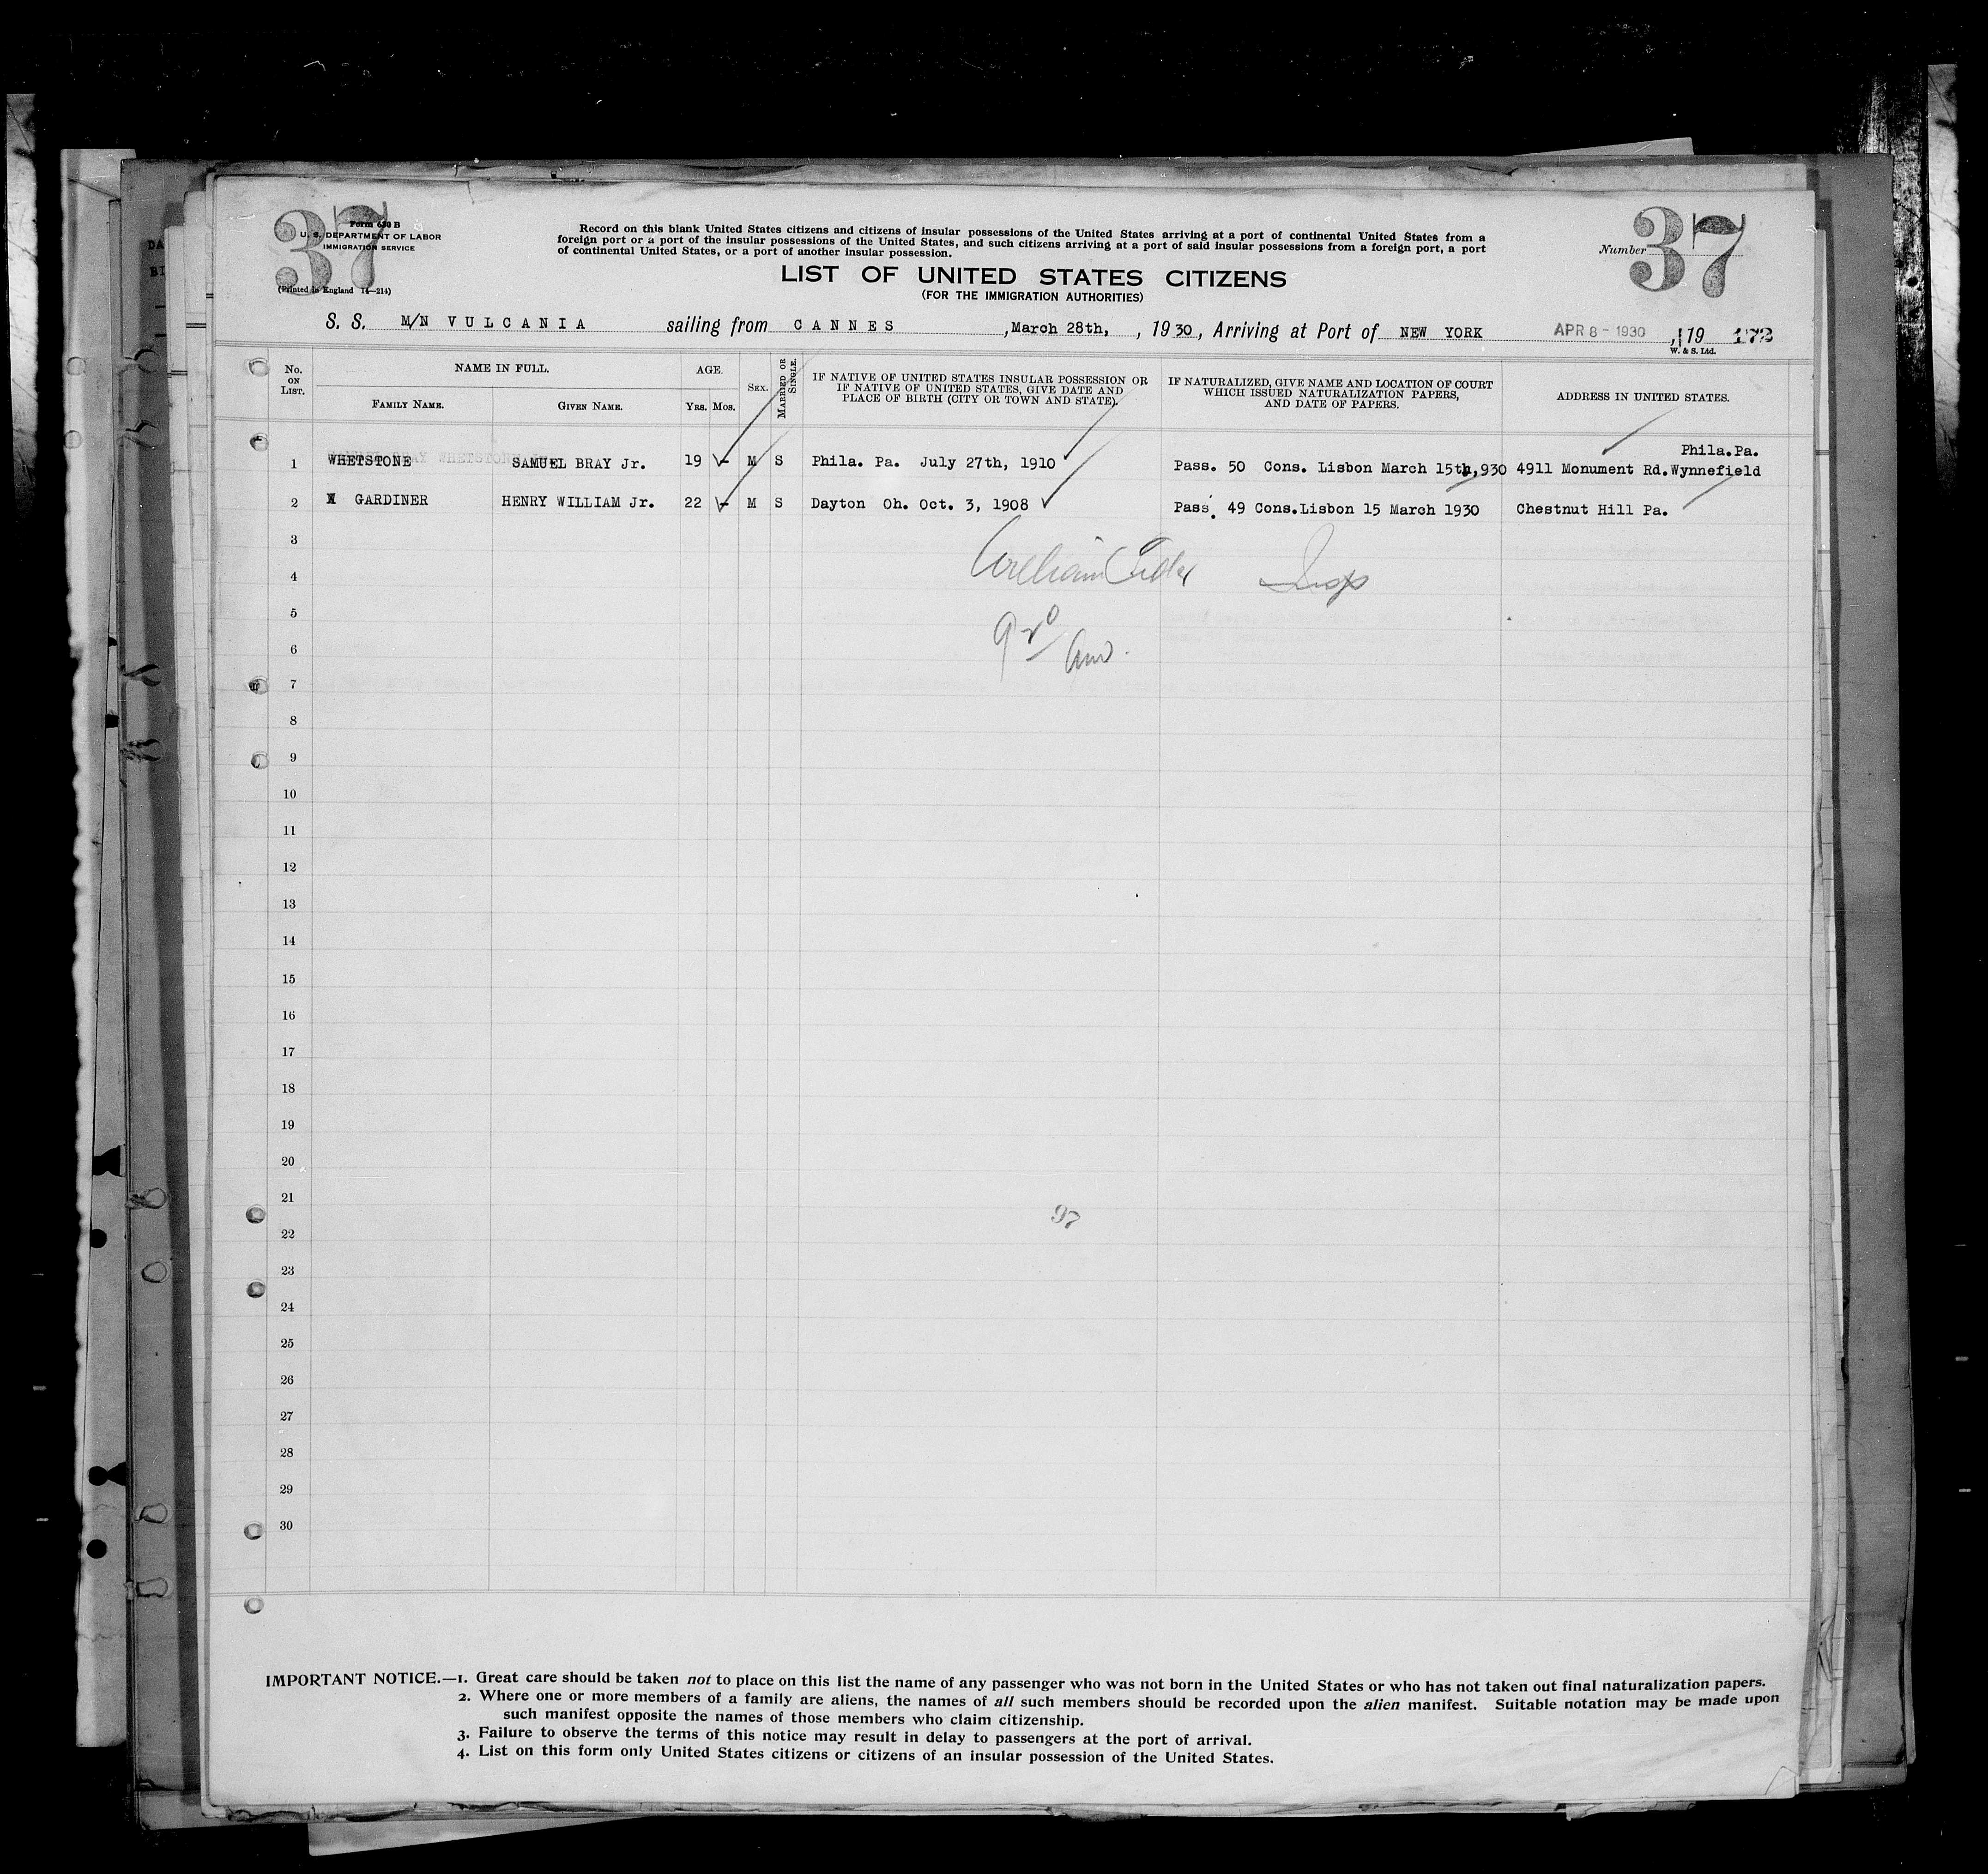 37
Form 630 B
U. S. DEPARTMENT OF LABOR
IMMIGRATION SERVICE
(Printed in England 14—214)
Record on this blank United States citizens and citizens of insular possessions of the United States arriving at a port of continental United States from a
foreign port or a port of the insular possessions of the United States, and such citizens arriving at a port of said insular possessions from a foreign port, a port
of continental United States, or a port of another insular possession.
Number 37
LIST OF UNITED STATES CITIZENS
(FOR THE IMMIGRATION AUTHORITIES)
S. S. M/N VULCANIA sailing from CANNES, March 28th, , 1930, Arriving at Port of NEW YORK APR 8 - 1930, 19 172
W. & S. Ltd.
No. ON LIST.
NAME IN FULL.
FAMILY NAME. GIVEN NAME.
AGE.
YRS. MOS.
SEX.
MARRIED OR SINGLE.
IF NATIVE OF UNITED STATES INSULAR POSSESSION OR
IF NATIVE OF UNITED STATES, GIVE DATE AND
PLACE OF BIRTH (CITY OR TOWN AND STATE).
IF NATURALIZED, GIVE NAME AND LOCATION OF COURT
WHICH ISSUED NATURALIZATION PAPERS,
AND DATE OF PAPERS.
ADDRESS IN UNITED STATES.
Phila.Pa.
1 WHETSTONE SAMUEL BRAY Jr. 19 - M S Phila. Pa. July 27th, 1910 Pass. 50 Cons. Lisbon March 15th,930 4911 Monument Rd.Wynnefield
2 GARDINER HENRY WILLIAM Jr. 22 - M S Dayton Oh. Oct. 3, 1908 Pass. 49 Cons.Lisbon 15 March 1930 Chestnut Hill Pa.
3
William Insp
4
5
6
7
8
9
10
11
12
13
14
15
16
17
18
19
20
21
97
22
23
24
25
26
27
28
29
30
IMPORTANT NOTICE.—1. Great care should be taken not to place on this list the name of any passenger who was not born in the United States or who has not taken out final naturalization papers.
2. Where one or more members of a family are aliens, the names of all such members should be recorded upon the alien manifest. Suitable notation may be made upon
such manifest opposite the names of those members who claim citizenship.
3. Failure to observe the terms of this notice may result in delay to passengers at the port of arrival.
4. List on this form only United States citizens or citizens of an insular possession of the United States.